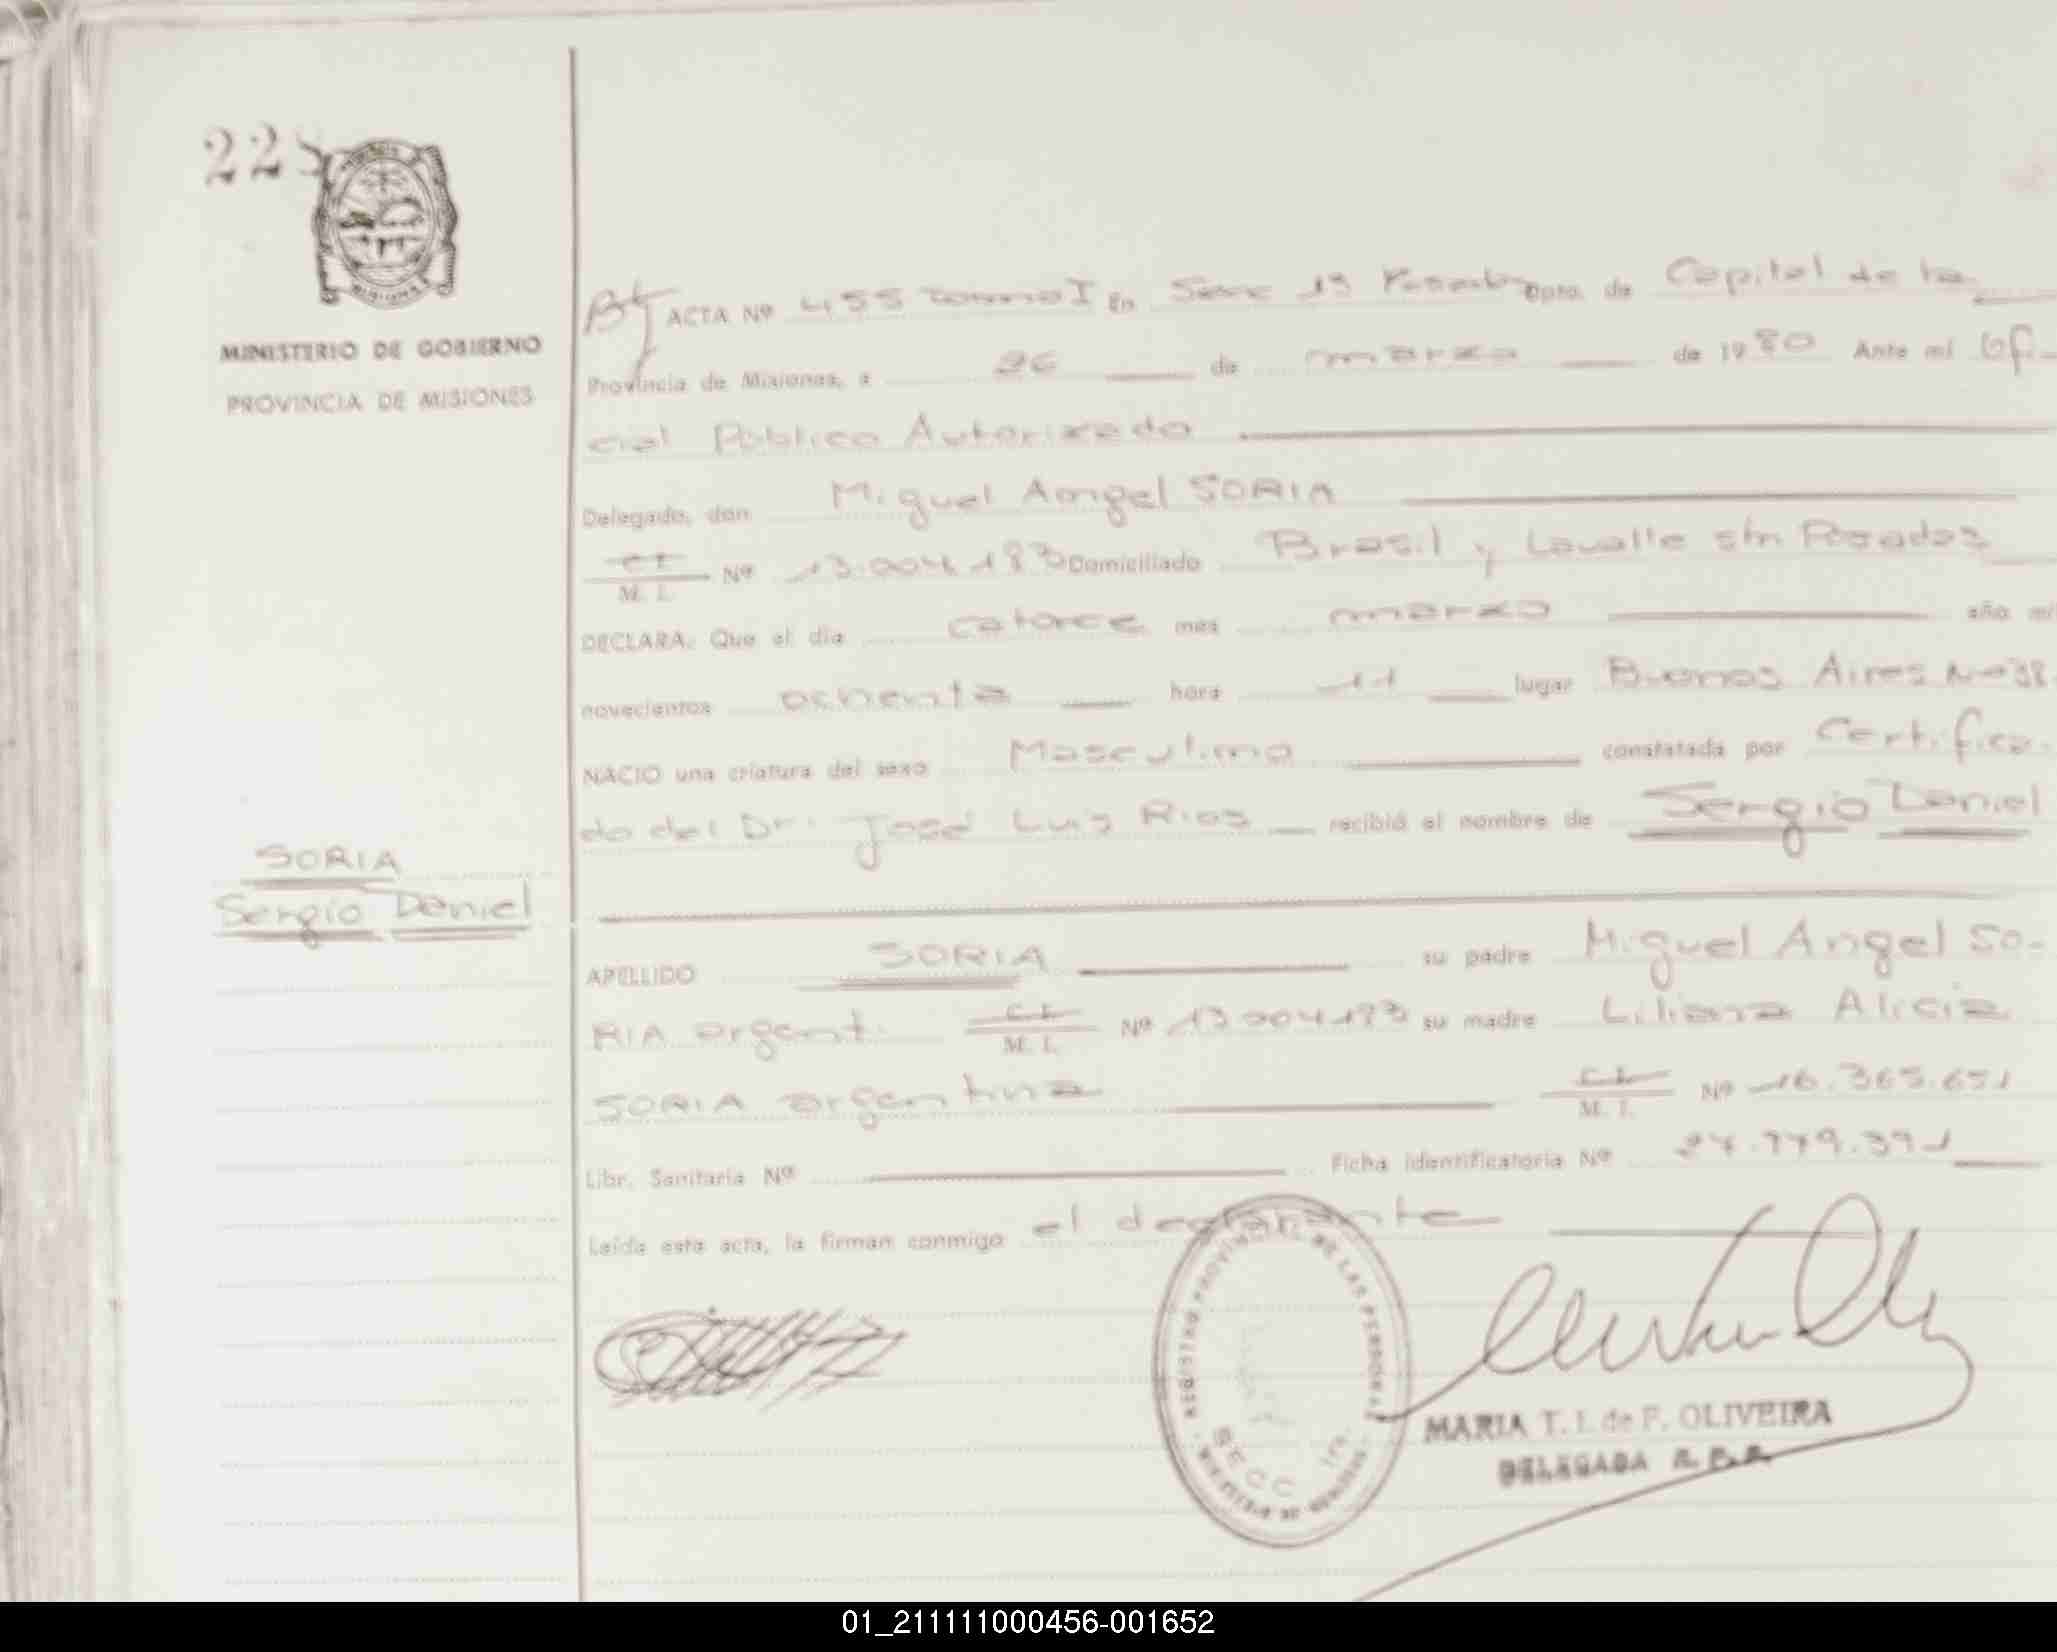 228
MINISTERIO DE GOBIERNO
PROVINCIA DE MISIONES
ACTA Nº 455 Tomo I En Secc 1ª Posadas Dpto. de Capital de la
Provincia de Misiones, a 26 de marzo de 1980 Ante mí Ofi-
cial Público Autorizado
Delegado, don Miguel Angel SORIA
C.I. M. I. Nº 13.004.183 Domiciliado Brasil y Lavalle s/n Posadas
DECLARA: Que el día catorce mes marzo año mil
novecientos ochenta hora 11 lugar Buenos Aires Nº 38
NACIO una criatura del sexo Masculino constatada por Certifica-
do del Dr. José Luis Rios recibió el nombre de Sergio Daniel
SORIA
Sergio Daniel
APELLIDO SORIA su padre Miguel Angel SO-
RIA argent. C.I. M. I. Nº 13004183 su madre Liliana Alicia
SORIA argentina C.I. M. I. Nº 16.365.651
Libr. Sanitaria Nº Ficha identificatoria Nº 27.779.391
Leída esta acta, la firman conmigo el declarante
REGISTRO PROVINCIAL DE LAS PERSONAS
MINISTERIO DE GOBIERNO
SECC 1ra.
MARIA T. I. de F. OLIVEIRA
DELEGADA R. P. P.
01_211111000456-001652